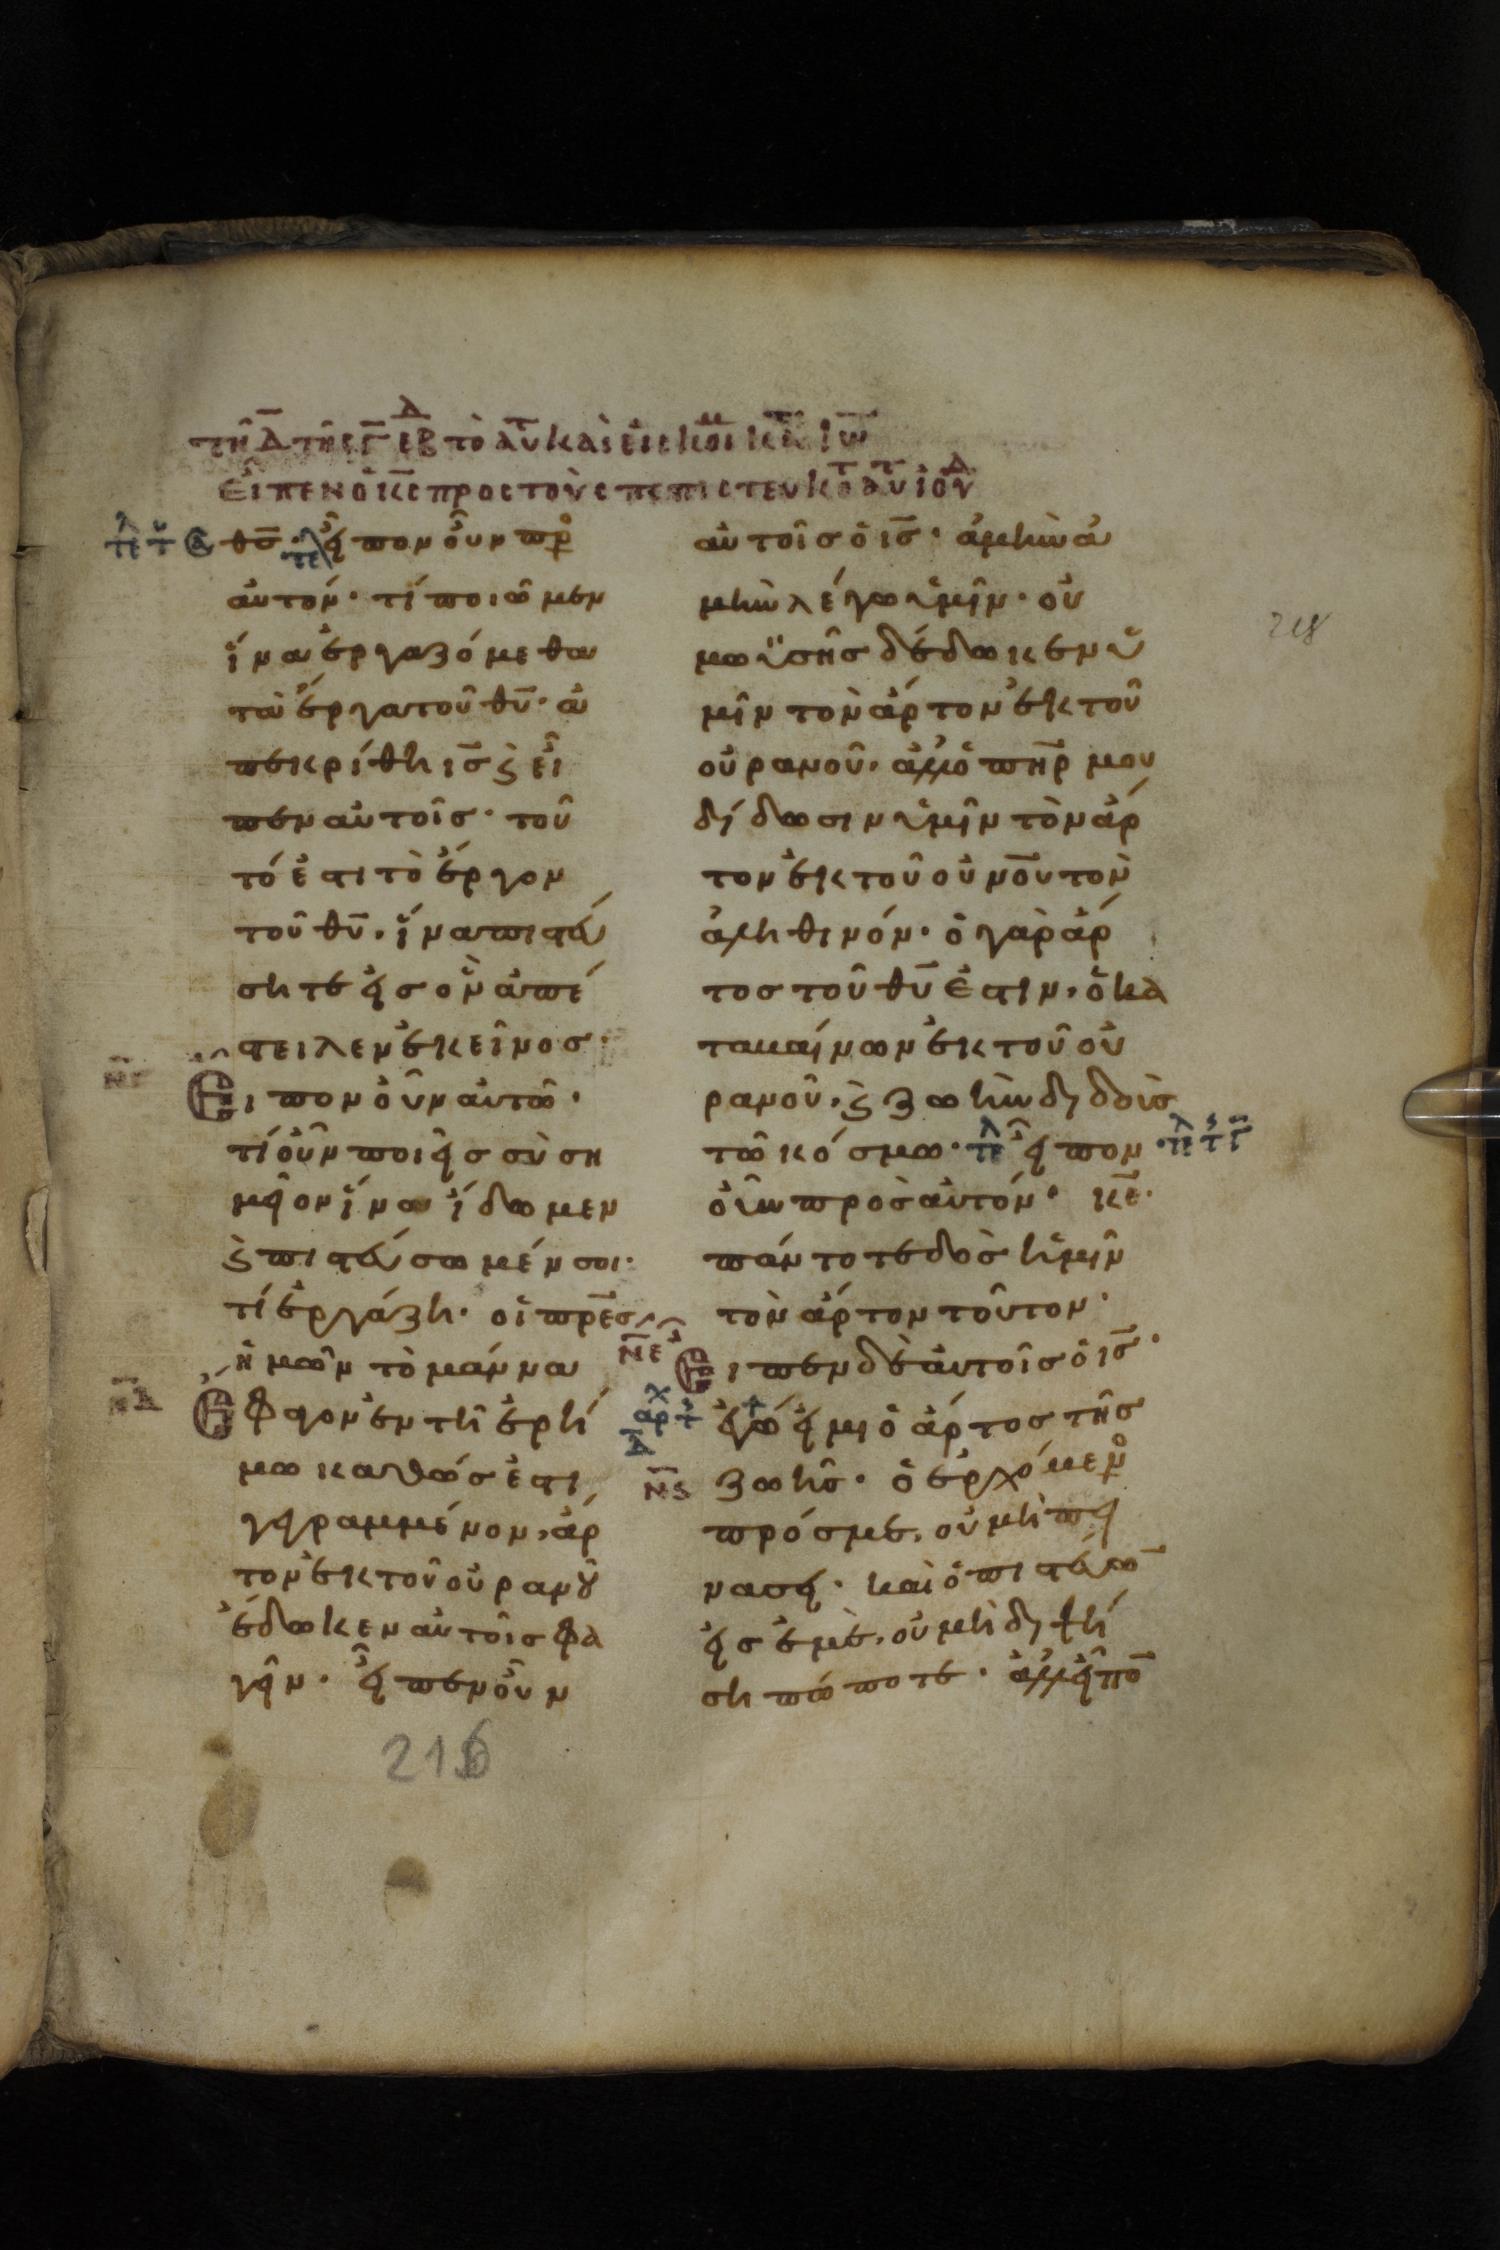 εἶπεν ὁ κς πρὸς τοὺς πεπιστευκότας αὐτῷ ἰουδ
θς· εἶπον οὖν πρὸς
αὐτόν· τί ποιῶμεν
ἵνα ἐργαζόμεθα
τὰ ἔργα τοῦ θυ· ἀ
πεκρίθη ις καὶ εἶ
πεν αὐτοῖς· τοῦ
τό ἐστι τὸ ἔργον
τοῦ θυ, ἵνα πιστεύ
σητε εἰς ὃν ἀπέ
στειλεν ἐκεῖνος·
νγ
Εἶπον οὖν αὐτῶ·
τί οὖν ποιεῖς σὺ ση
μεῖον ἵνα ἴδωμεν
καὶ πιστεύσωμέν σοι·
τί ἐργάζη· οἱ πρες
ἡμῶν τὸ μάννα
νδ
Ἔφαγον ἐν τῆ ἐρή
μω καθώς ἐστι
γεγραμμένον, ἄρ
τον ἐκ τοῦ οὐρανοῦ
ἔδωκεν αὐτοῖς φα
γεῖν· εἶπεν οὖν
216
αὐτοῖς ὁ ις· ἀμὴν ἀ
μὴν λέγω ὑμῖν· οὐ
μωϋσῆς δέδωκεν ὑ
μῖν τὸν ἄρτον ἐκ τοῦ
οὐρανοῦ, ἀλλ' ὁ πηρ μου
δίδωσιν ὑμῖν τὸν ἄρ
τον ἐκ τοῦ οὐνου τὸν
ἀληθινόν· ὁ γὰρ ἄρ
τος τοῦ θυ ἐστιν, ὁ κα
ταβαίνων ἐκ τοῦ οὐ
ρανοῦ, καὶ ζωὴν διδοὺς
τῶ κόσμω· τε εἶπον
οὖν πρὸς αὐτόν· κε·
πάντοτε δὸς ἡμῖν
τὸν ἄρτον τοῦτον·
νε
Εἶπεν δὲ αὐτοῖς ὁ ις·
αρχ
ἐγώ εἰμι ὁ ἄρτος τῆς
νς
ζωῆς· ὁ ἐρχόμενος
πρός με, οὐ μὴ πει
νάσει· καὶ ὁ πιστεύω
εἰς ἐμὲ, οὐ μὴ διψή
ση πώποτε· ἀλλ' εἶπο
218